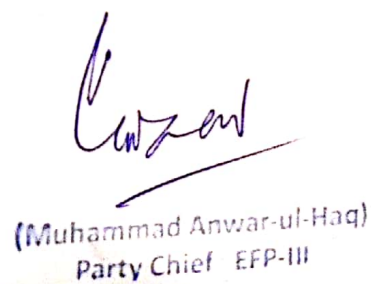 (Muhammad Anwar-ul-Haq)
Party Chief EFP-III